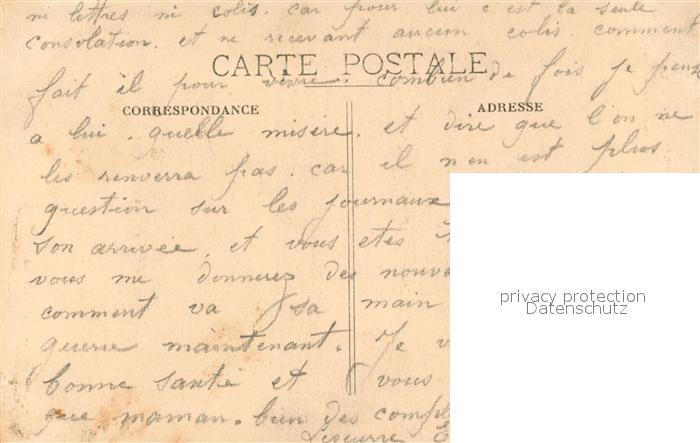 ni lettres ni colis. car pour lui c est la seule
consolation. et ne recevant aucun colis. comment
CARTE POSTALE
fait il pour vivre. combien de fois je pense
CORRESPONDANCE
ADRESSE
a lui. quelle misére. et dire que l'on ne
les renverra pas. car il n en est plus
question sur les journaux
son arrivée et vous etes
vous me donnerez des nouve
privacy protection
Datenschutz
comment va sa main
guerie maintenant. Je v
bonne santé et vous
que maman. bien des compl